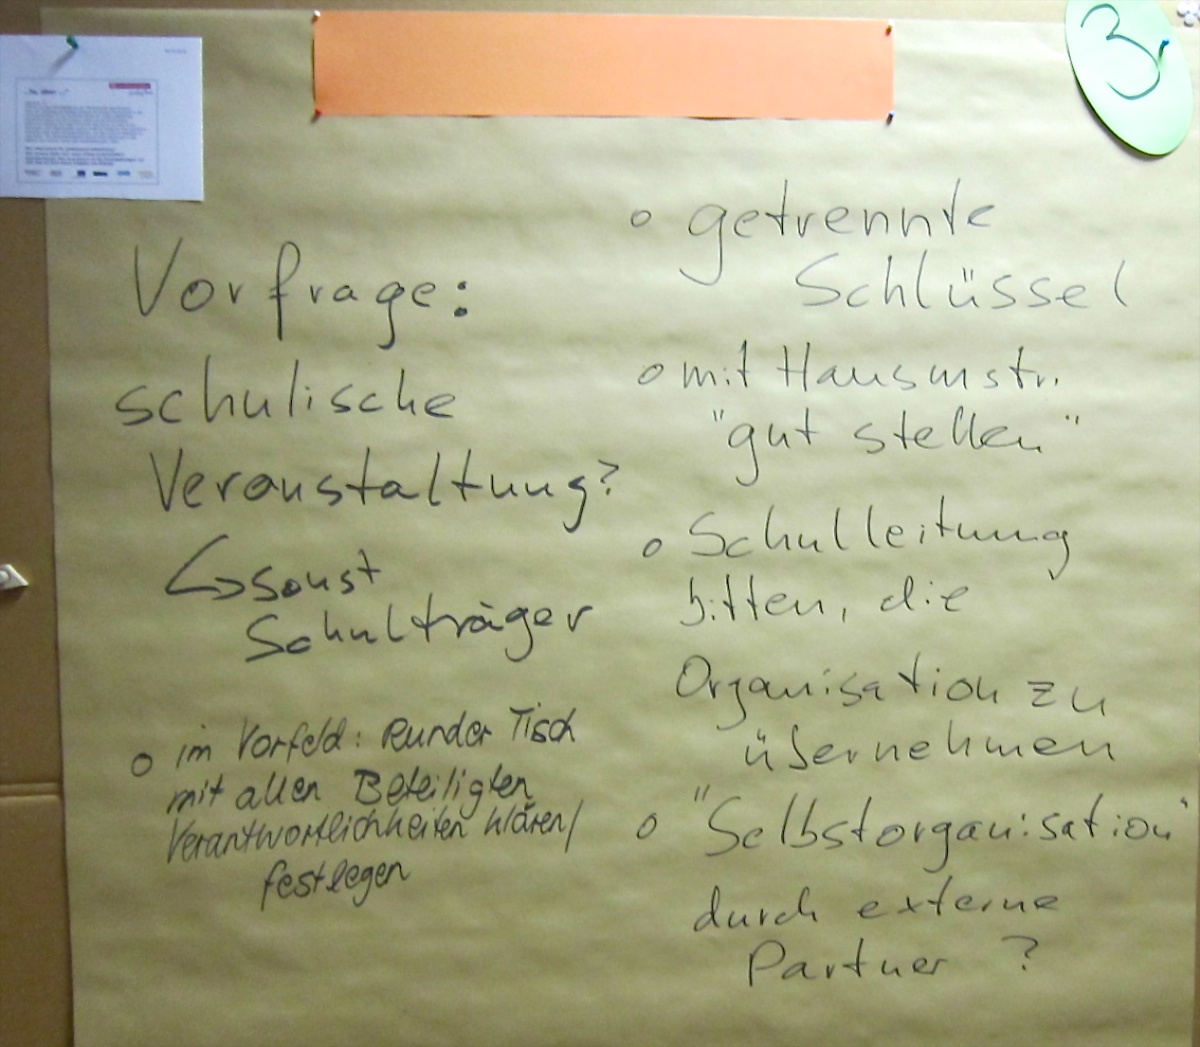 3
"Ja, aber ..."
Vorfrage:
schulische
Veranstaltung?
↳ sonst
Schulträger
o im Vorfeld: Runder Tisch
mit allen Beteiligten
Verantwortlichkeiten klären/
festlegen
o getrennte
Schlüssel
o mit Hausmstr.
"gut stellen"
o Schulleitung
bitten, die
Organisation zu
übernehmen
o "Selbstorganisation"
durch externe
Partner ?